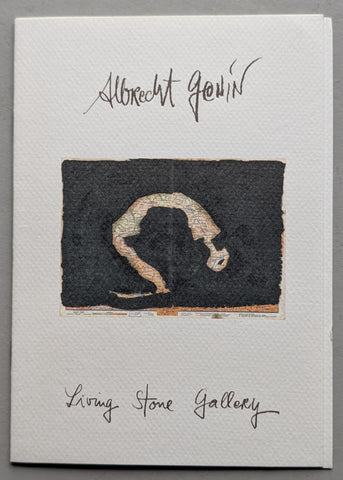 Albrecht Genin
Living Stone Gallery